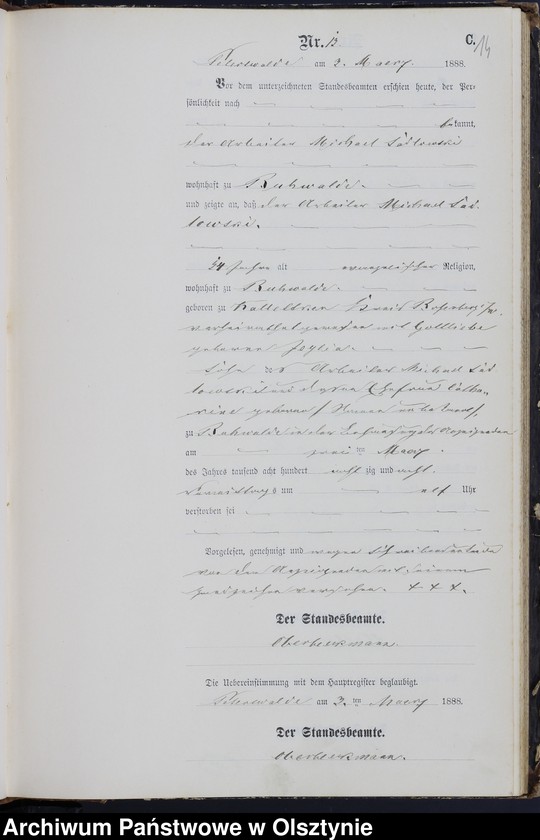 Nr. 13
C.
14
am 2. Maerz 1888.
Vor dem unterzeichneten Standesbeamten erschien heute, der Per=
sönlichkeit nach
bekannt,
der Arbeiter Michael Sadlowski
wohnhaft zu Buchwalde.
und zeigte an, daß der Arbeiter Michael Sad
lowski.
Jahre alt evangelischer Religion,
wohnhaft zu Buchwalde.
geboren zu Kreis
verheirathet gewesen mit Gottliebe
geborene
Sohn des Arbeiter Michael Sad
lowski und dessen Ehefrau Catha
rine geborene
zu Buchwalde in der Behausung des Anzeigenden
am zwei ten Maerz
des Jahres tausend acht hundert acht zig und acht.
Vormittags um elf Uhr
verstorben sei
Vorgelesen, genehmigt und wegen Schreibensunkunde
von dem Anzeigenden mit seinem
Handzeichen versehen. + + +.
Der Standesbeamte.
Oberbeckmann.
Die Uebereinstimmung mit dem Hauptregister beglaubigt.
am 2. ten Maerz 1888.
Der Standesbeamte.
Oberbeckmann.
Archiwum Państwowe w Olsztynie